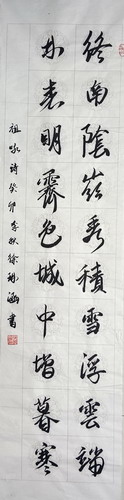 終南陰嶺秀積雪浮雲端
林表明霽色城中增暮寒
祖詠詩癸卯季秋徐瑞涵書